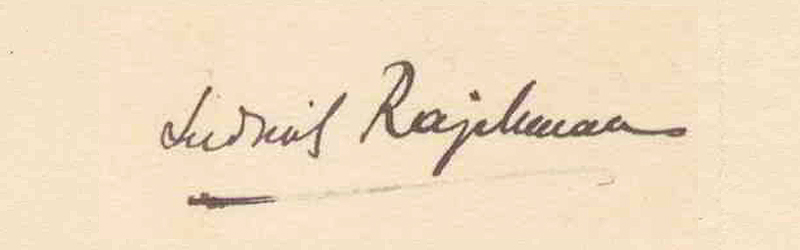 Ludwik Rajchman